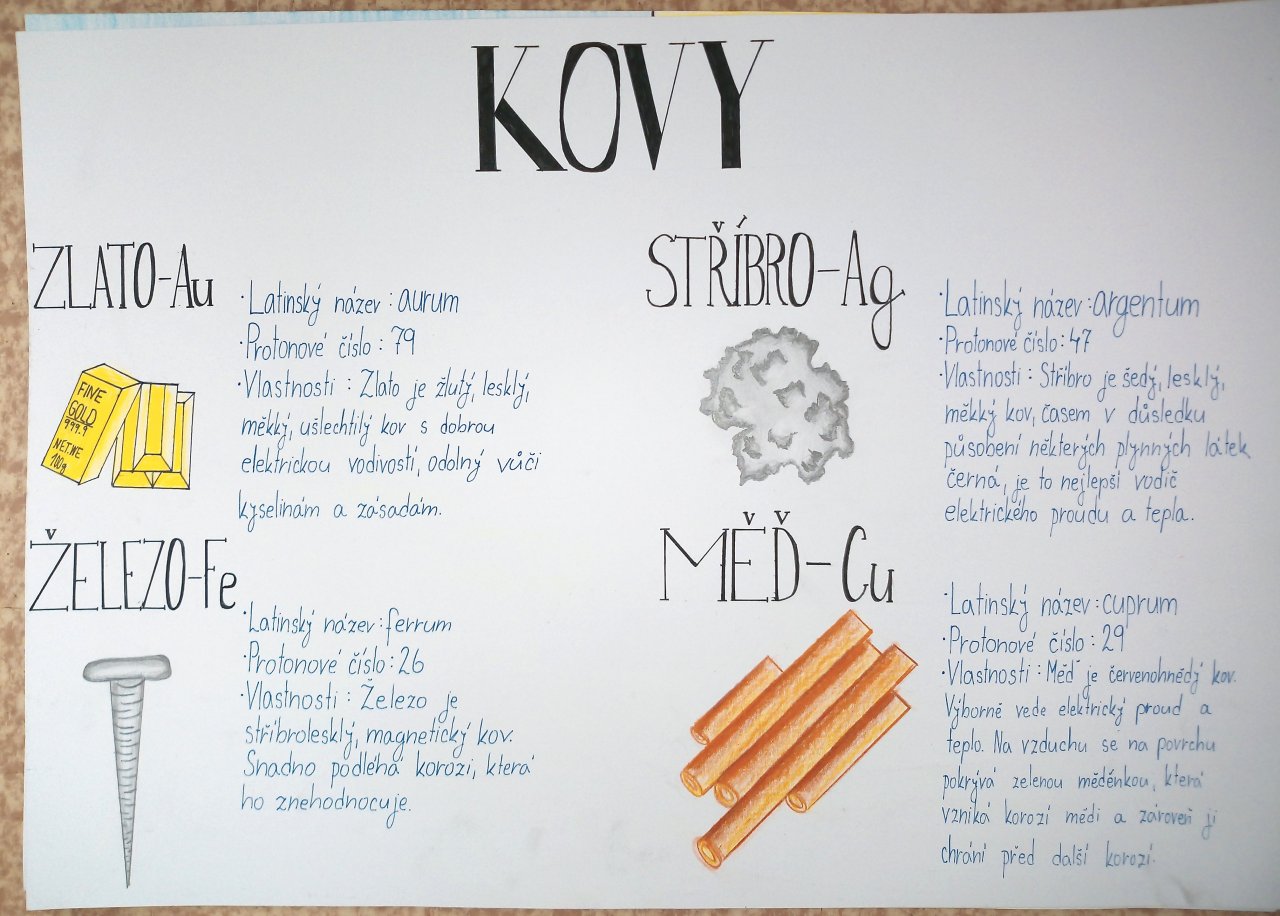 KOVY
ZLATO-Au
·Latinský název: aurum
·Protonové číslo: 79
·Vlastnosti: Zlato je žlutý, lesklý,
měkký, ušlechtilý kov s dobrou
elektrickou vodivostí, odolný vůči
kyselinám a zásadám.
FINE
GOLD
999.9
NET.WE
100g
STŘÍBRO-Ag
·Latinský název: argentum
·Protonové číslo: 47
·Vlastnosti: Stříbro je šedý, lesklý,
měkký kov, časem v důsledku
působení některých plynných látek
černá, je to nejlepší vodič
elektrického proudu a tepla.
ŽELEZO-Fe
·Latinský název: ferrum
·Protonové číslo: 26
·Vlastnosti: Železo je
stříbrolesklý, magnetický kov.
Snadno podléhá korozi, která
ho znehodnocuje.
MĚĎ-Cu
·Latinský název: cuprum
·Protonové číslo: 29
·Vlastnosti: Měď je červenohnědý kov.
Výborně vede elektrický proud a
teplo. Na vzduchu se na povrchu
pokrývá zelenou měděnkou, která
vzniká korozí mědi a zároveň ji
chrání před další korozí.